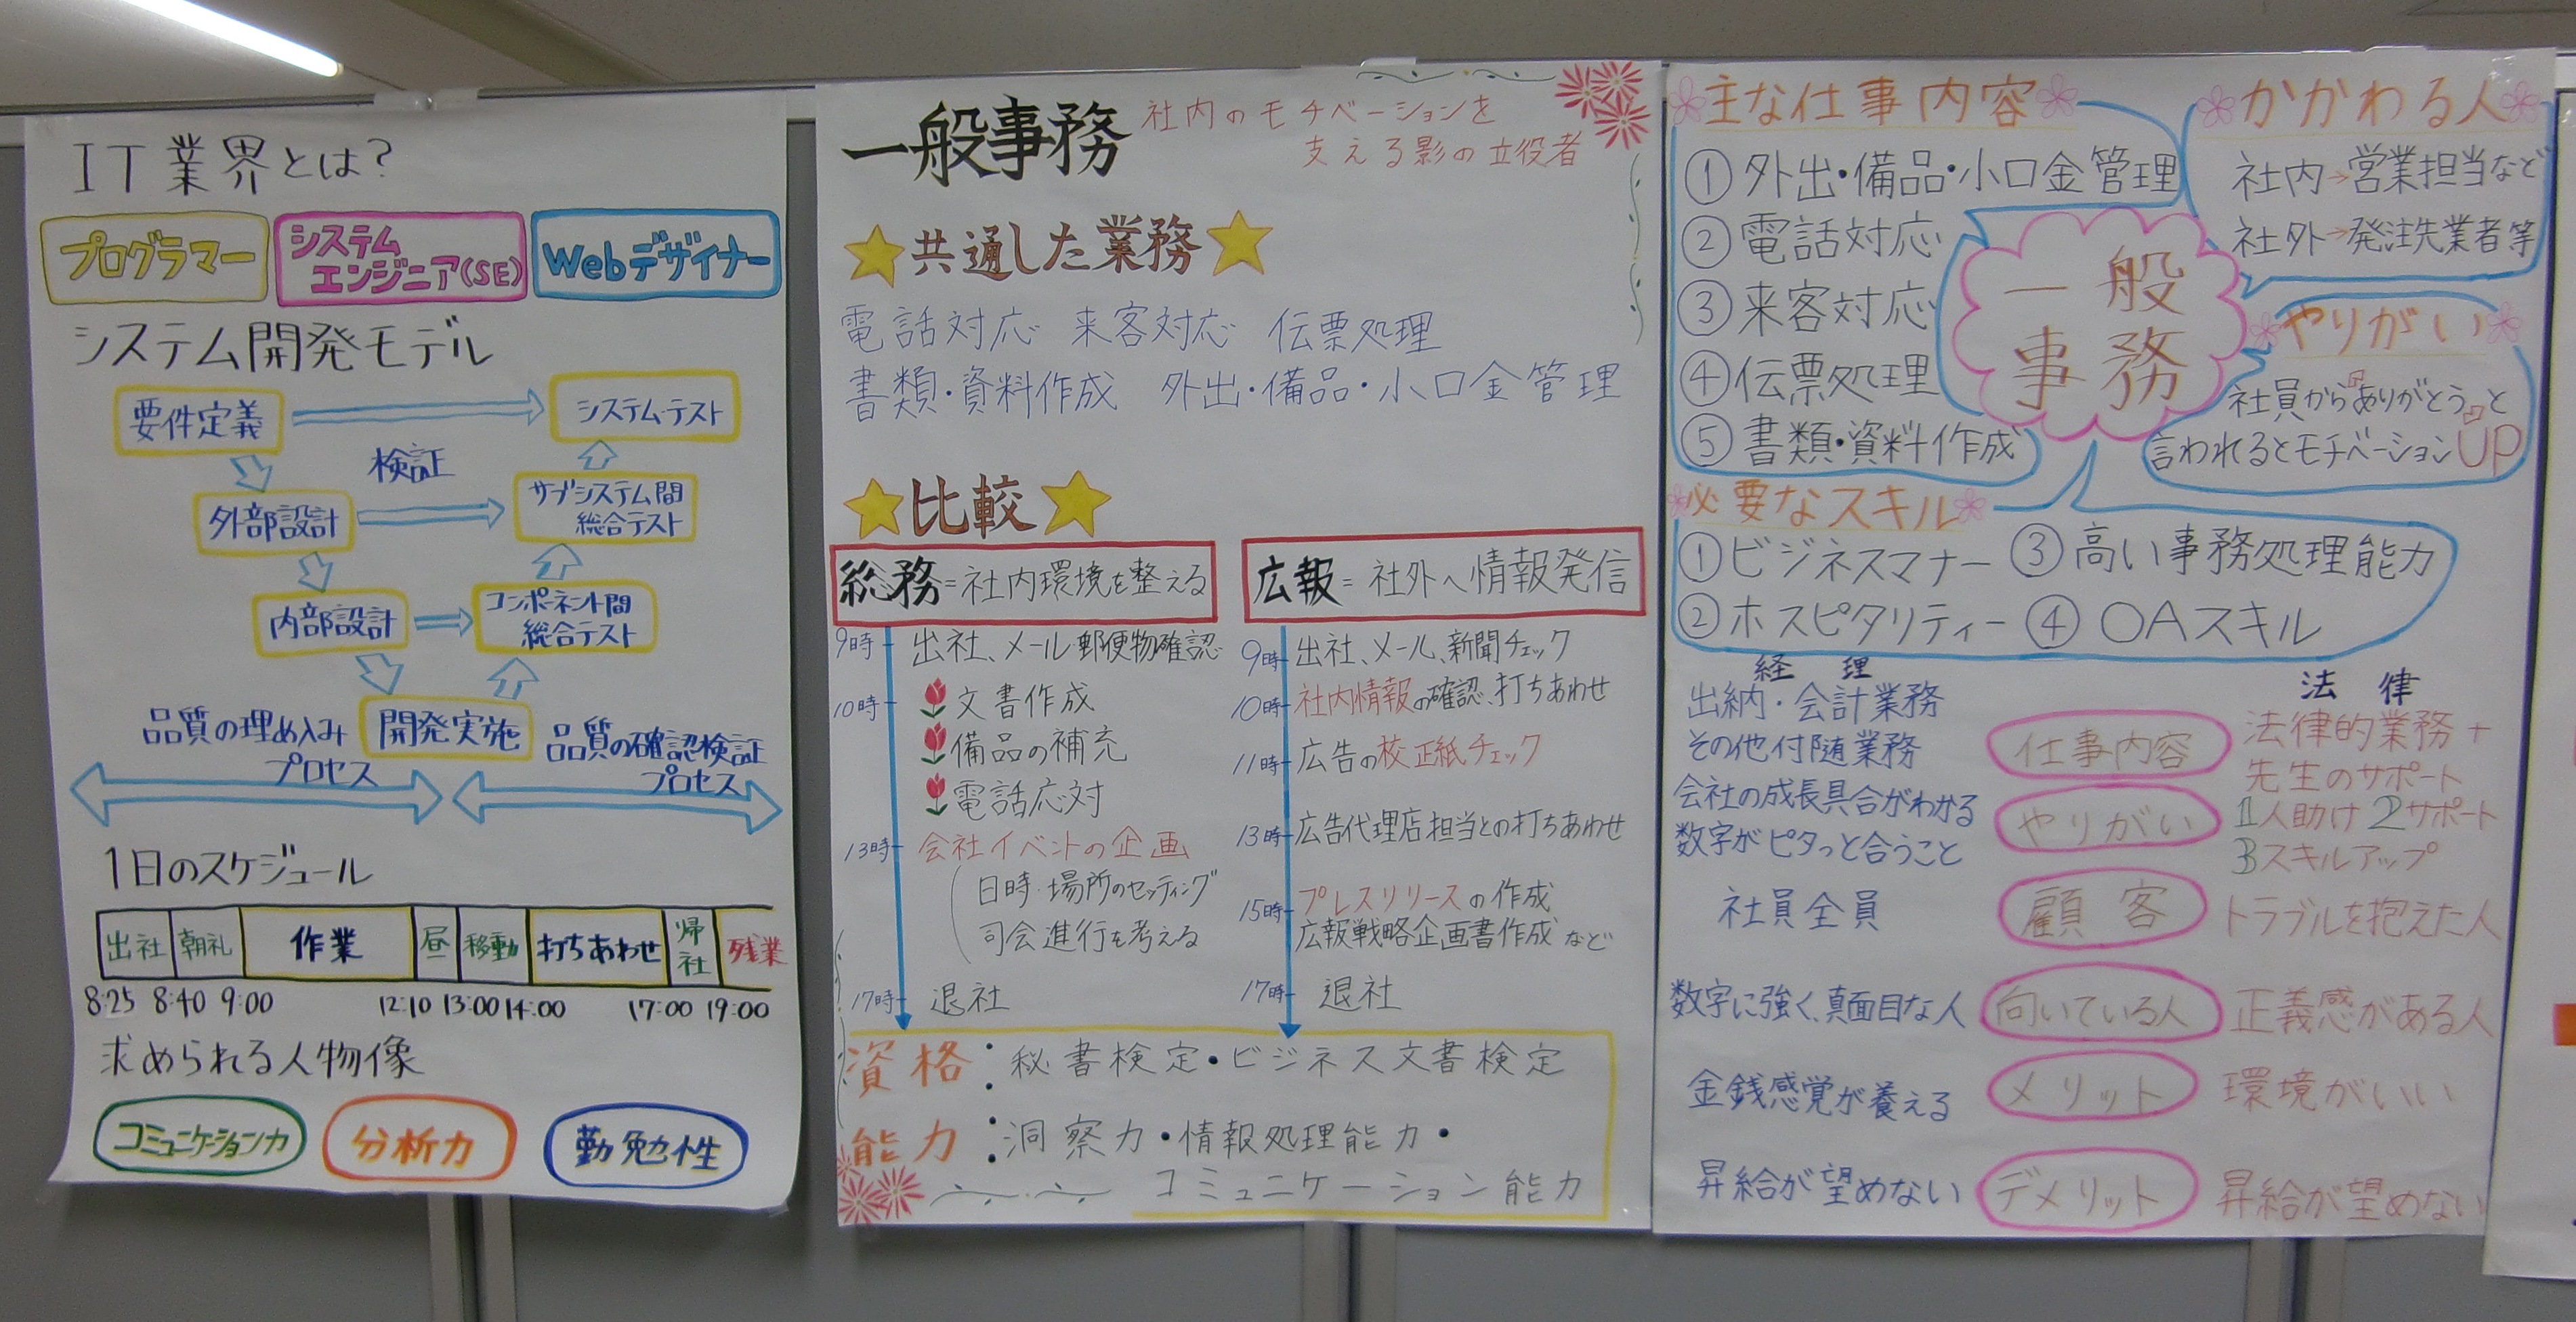 IT業界とは?
プログラマー
システム
エンジニア(SE)
Webデザイナー
システム開発モデル
要件定義
システム・テスト
検証
外部設計
サブシステム間
総合テスト
内部設計
コンポーネント間
総合テスト
開発実施
品質の埋め込み
プロセス
品質の確認検証
プロセス
1日のスケジュール
出社 朝礼 作業 昼 移動 打ちあわせ 帰社 残業
8:25 8:40 9:00 12:10 13:00 14:00 17:00 19:00
求められる人物像
コミュニケーション力
分析力
勤勉性
一般事務
社内のモチベーションを
支える影の立役者
共通した業務
電話対応 来客対応 伝票処理
書類・資料作成 外出・備品・小口金管理
比較
総務=社内環境を整える
9時 出社、メール・郵便物確認
10時 文書作成
備品の補充
電話応対
13時 会社イベントの企画
日時・場所のセッティング
司会進行を考える
17時 退社
広報=社外へ情報発信
9時 出社、メール、新聞チェック
10時 社内情報の確認、打ちあわせ
11時 広告の校正紙チェック
13時 広告代理店担当との打ちあわせ
15時 プレスリリースの作成
広報戦略企画書作成 など
17時 退社
資格:秘書検定・ビジネス文書検定
能力:洞察力・情報処理能力・
コミュニケーション能力
主な仕事内容
①外出・備品・小口金管理
②電話対応
③来客対応
④伝票処理
⑤書類・資料作成
一般
事務
かかわる人
社内→営業担当など
社外→発注先業者等
やりがい
社員から「ありがとう」と
言われるとモチベーションUP
必要なスキル
①ビジネスマナー ③高い事務処理能力
②ホスピタリティー ④OAスキル
経理
法律
出納・会計業務
その他付随業務
仕事内容
法律的業務+
先生のサポート
会社の成長具合がわかる
数字がピタっと合うこと
やりがい
1人助け 2サポート
3スキルアップ
社員全員
顧客
トラブルを抱えた人
数字に強く、真面目な人
向いている人
正義感がある人
金銭感覚が養える
メリット
環境がいい
昇給が望めない
デメリット
昇給が望めない